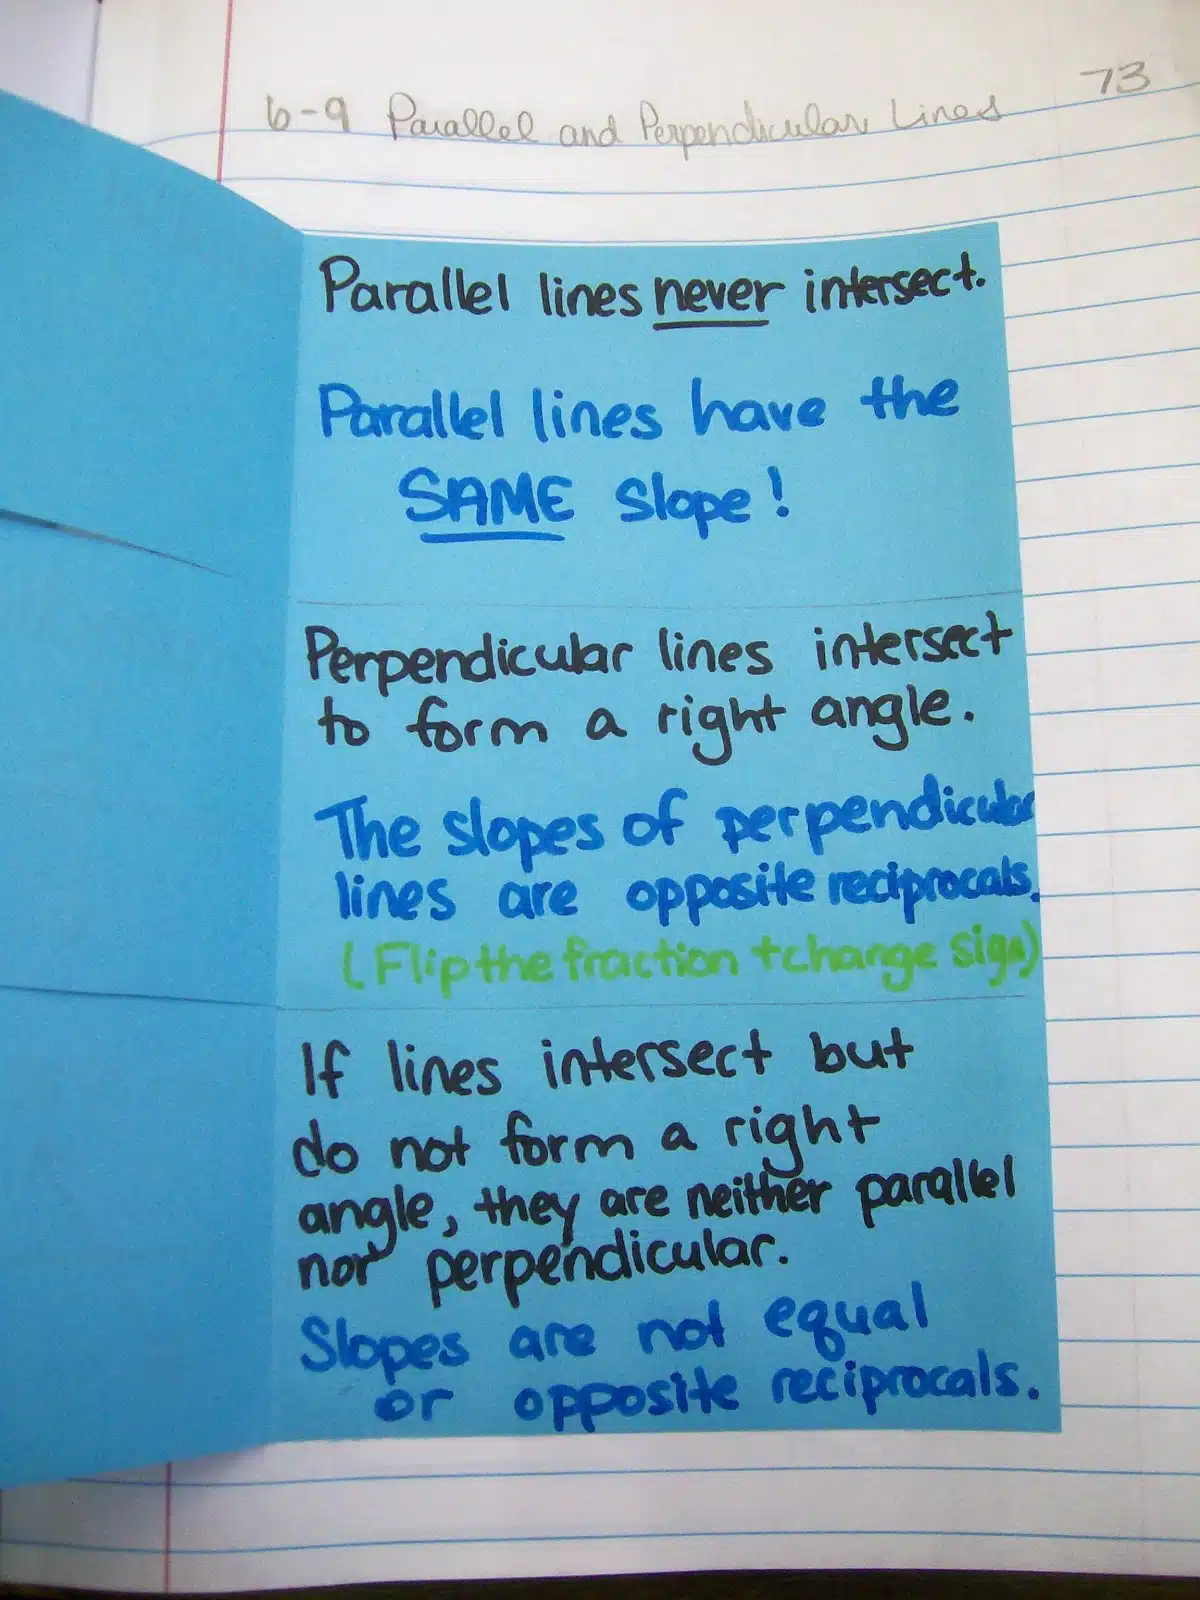 73
6-9 Parallel and Perpendicular Lines
Parallel lines never intersect.
Parallel lines have the
SAME slope!
Perpendicular lines intersect
to form a right angle.
The slopes of perpendicular
lines are opposite reciprocals.
(Flip the fraction + change sign)
If lines intersect but
do not form a right
angle, they are neither parallel
nor perpendicular.
Slopes are not equal
or opposite reciprocals.